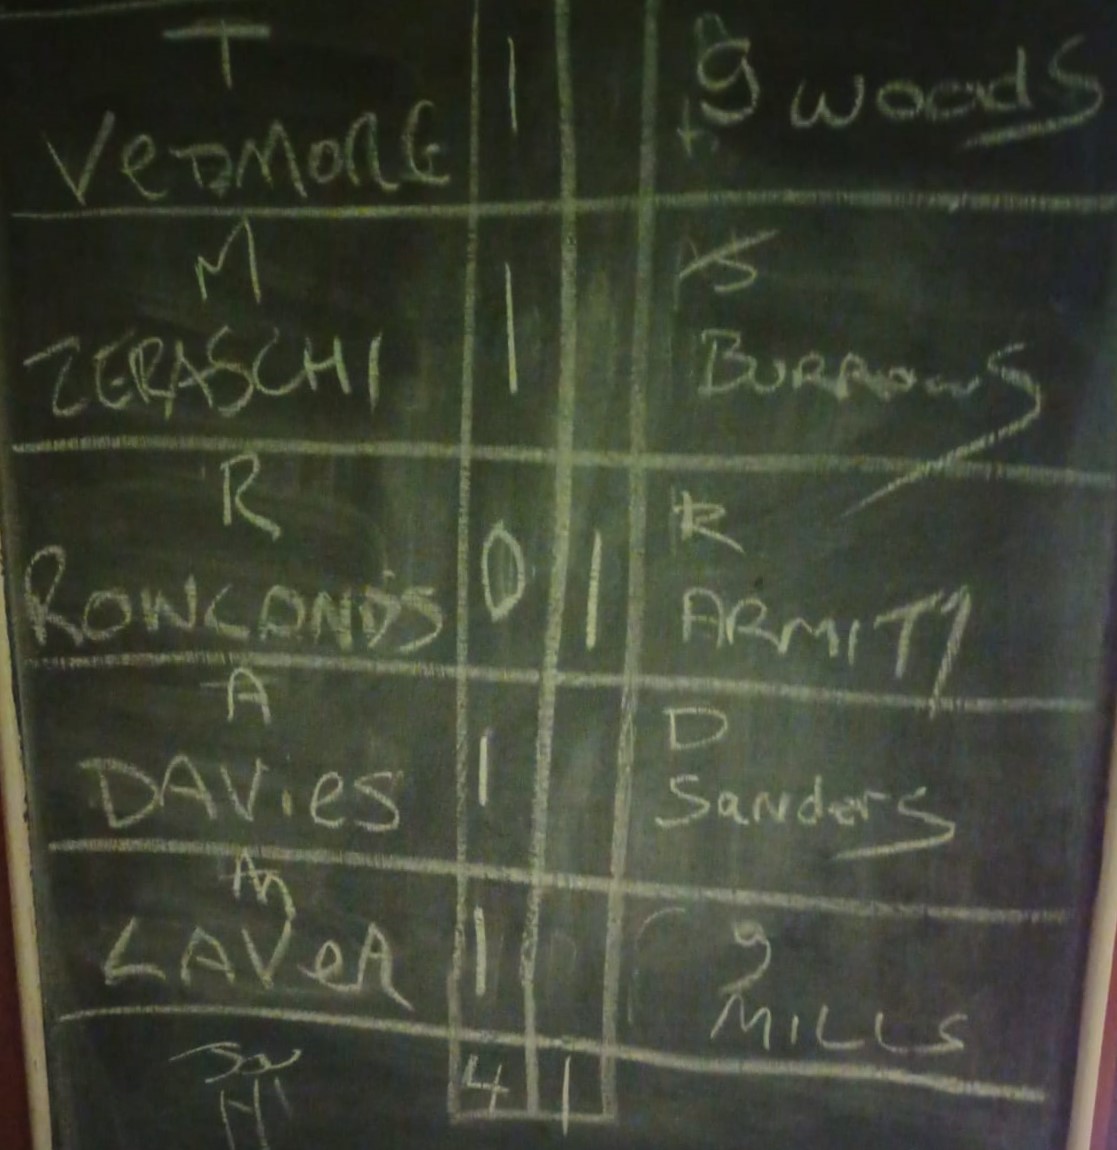 T
VeDMORE 1 g woods
M S
ZERASCHI 1 BURROWS
R R
ROWLANDS 0 1 ARMIT
A D
DAVieS 1 Sanders
g
LAVeR 1 MILLS
4 1